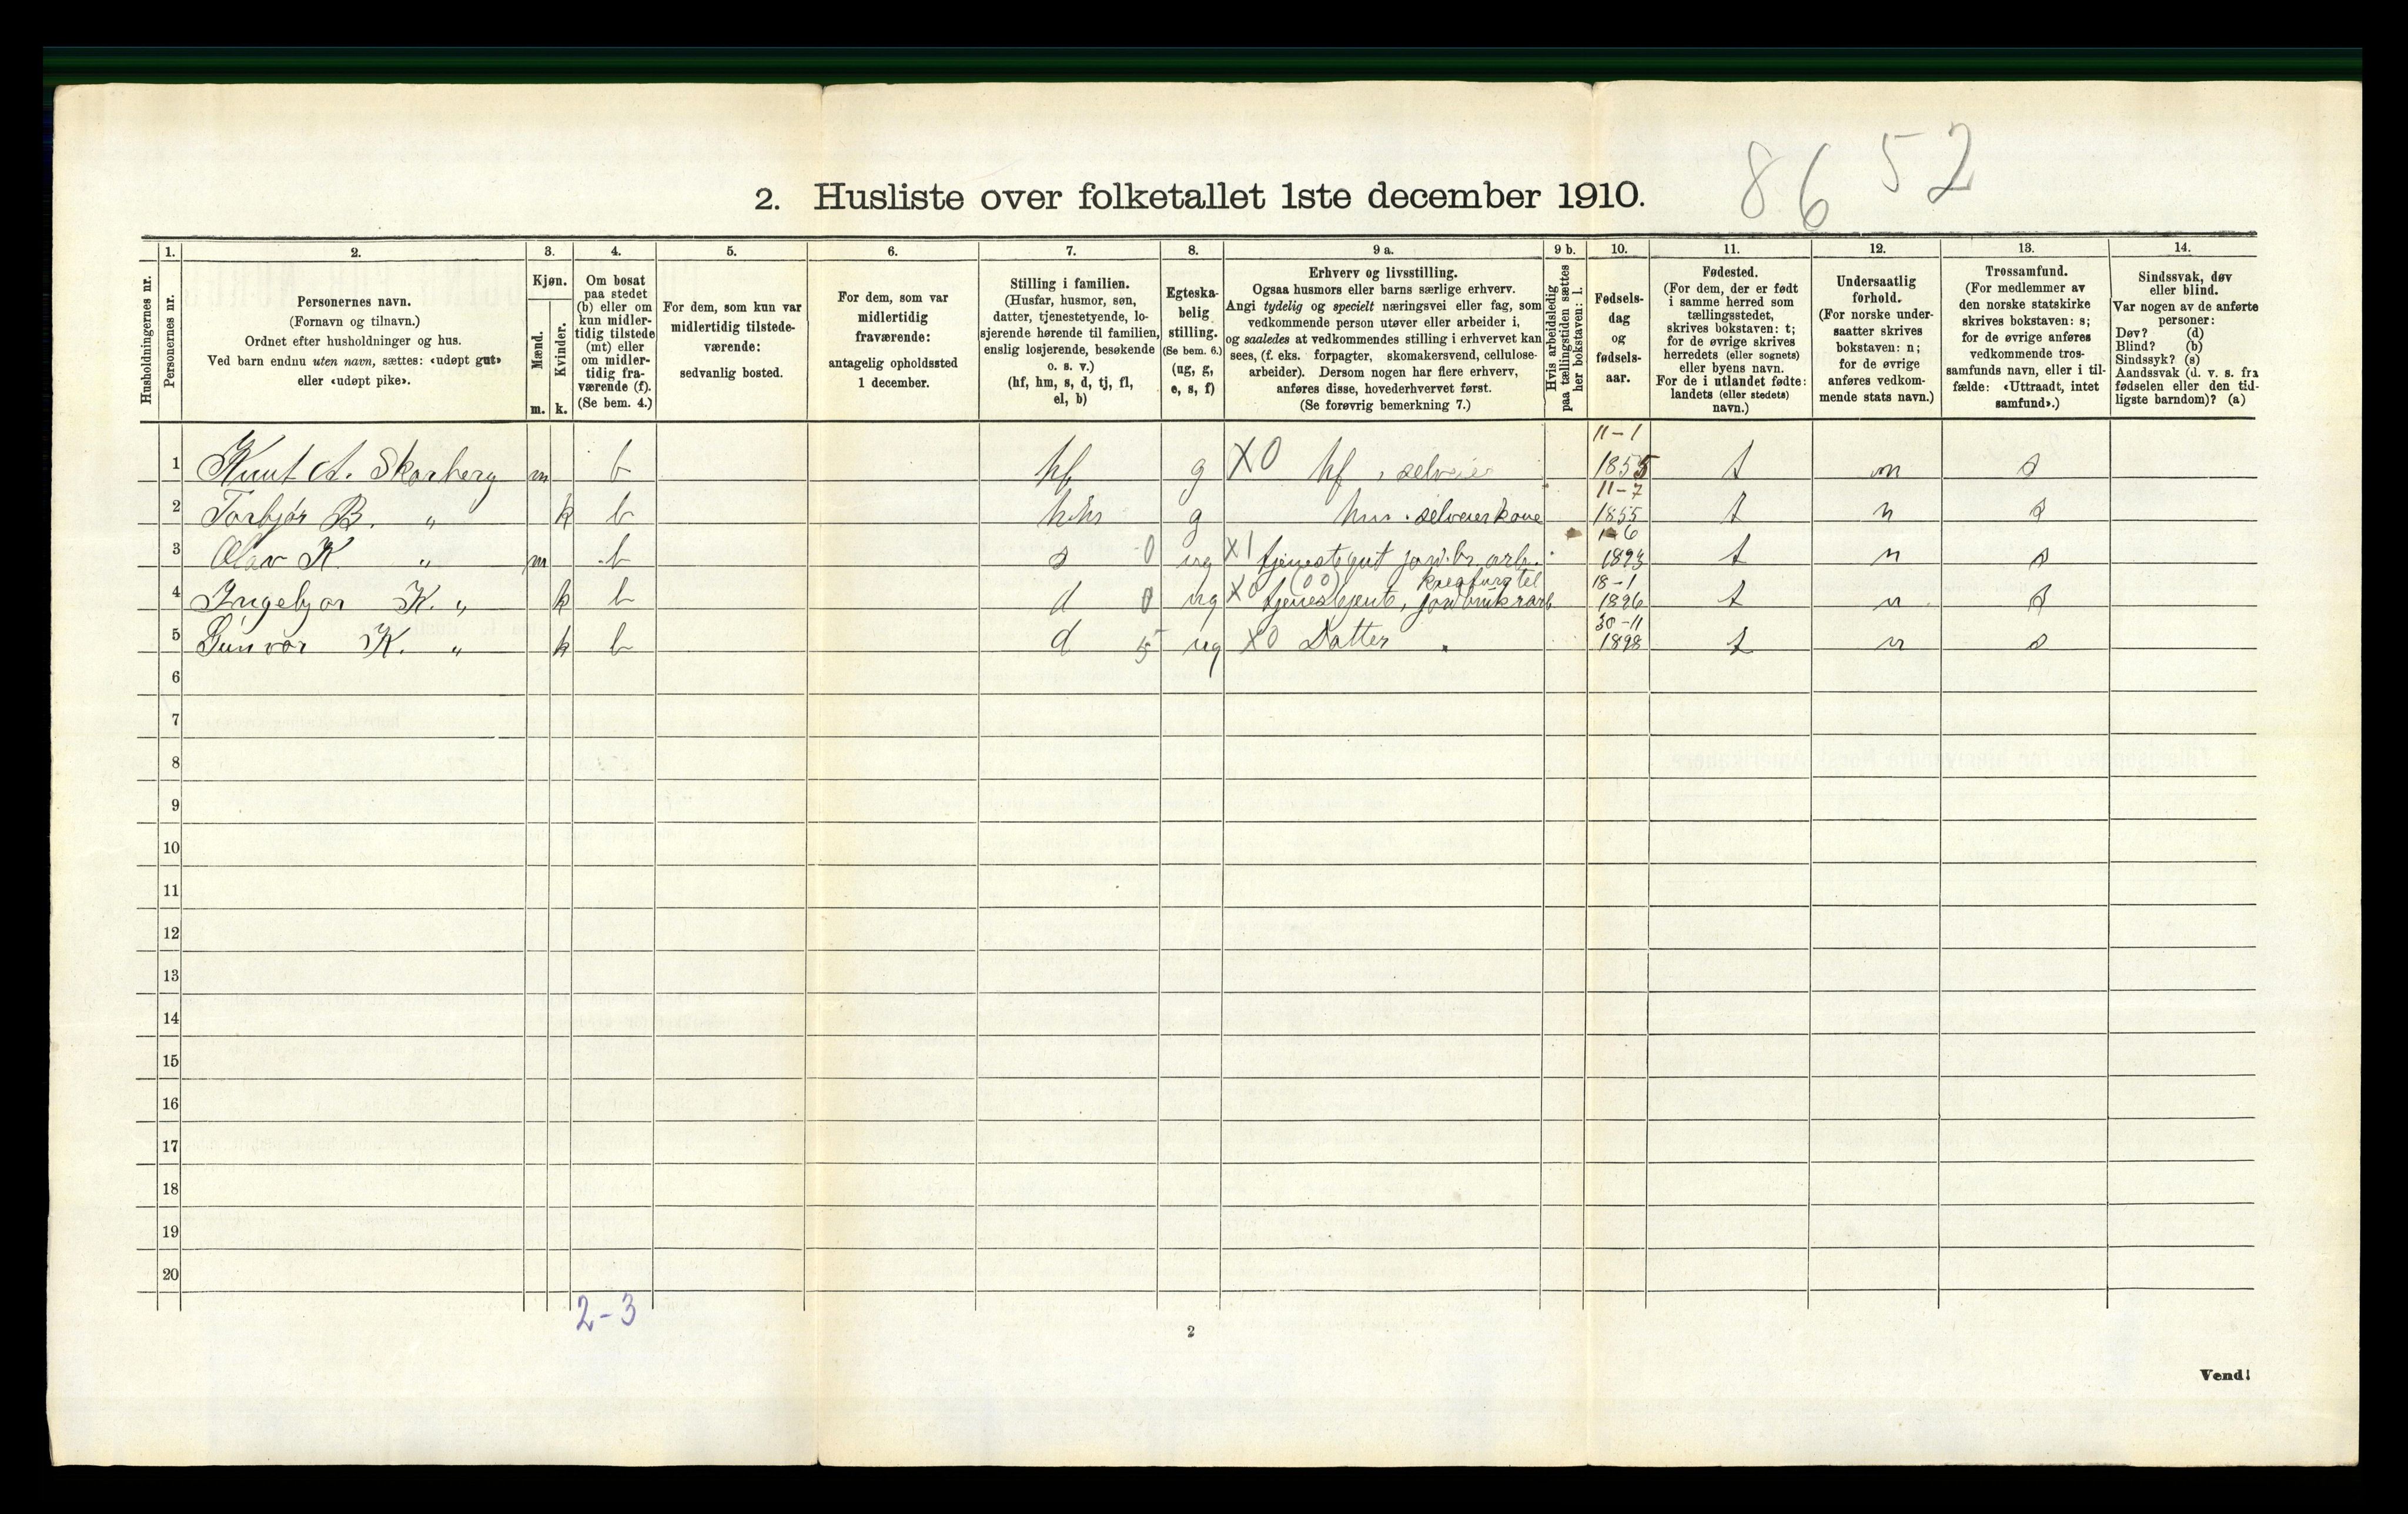 8652
2. Husliste over folketallet 1ste december 1910.
Husholdningernes nr.
1. Personernes nr.
2. Personernes navn.
(Fornavn og tilnavn.)
Ordnet efter husholdninger og hus.
Ved barn endnu uten navn, sættes: «udøpt gut»
eller «udøpt pike».
3. Kjøn.
Mænd. m.
Kvinder. k.
4. Om bosat
paa stedet
(b) eller om
kun midler-
tidig tilstede
(mt) eller
om midler-
tidig fra-
værende (f).
(Se bem. 4.)
5. For dem, som kun var
midlertidig tilstede-
værende:
sedvanlig bosted.
6. For dem, som var
midlertidig
fraværende:
antagelig opholdssted
1 december.
7. Stilling i familien.
(Husfar, husmor, søn,
datter, tjenestetyende, lo-
sjerende hørende til familien,
enslig losjerende, besøkende
o. s. v.)
(hf, hm, s, d, tj, fl,
el, b)
8. Egteska-
belig
stilling.
(Se bem. 6.)
(ug, g,
e, s, f)
9 a. Erhverv og livsstilling.
Ogsaa husmors eller barns særlige erhverv.
Angi tydelig og specielt næringsvei eller fag, som
vedkommende person utøver eller arbeider i,
og saaledes at vedkommendes stilling i erhvervet kan
sees, (f. eks. forpagter, skomakersvend, cellulose-
arbeider). Dersom nogen har flere erhverv,
anføres disse, hovederhvervet først.
(Se forøvrig bemerkning 7.)
9 b. Hvis arbeidsledig
paa tællingstiden sættes
her bokstaven: l.
10. Fødsels-
dag
og
fødsels-
aar.
11. Fødested.
(For dem, der er født
i samme herred som
tællingsstedet,
skrives bokstaven: t;
for de øvrige skrives
herredets (eller sognets)
eller byens navn.
For de i utlandet fødte:
landets (eller stedets)
navn.)
12. Undersaatlig
forhold.
(For norske under-
saatter skrives
bokstaven: n;
for de øvrige
anføres vedkom-
mende stats navn.)
13. Trossamfund.
(For medlemmer av
den norske statskirke
skrives bokstaven: s;
for de øvrige anføres
vedkommende tros-
samfunds navn, eller i til-
fælde: «Uttraadt, intet
samfund».)
14. Sindssvak, døv
eller blind.
Var nogen av de anførte
personer:
Døv? (d)
Blind? (b)
Sindssyk? (s)
Aandssvak (d. v. s. fra
fødselen eller den tid-
ligste barndom)? (a)
1 Knut A. Skarberg m b hf g X0 hf, selveier 11-1 1855 t n s
2 Torbjør B. " k b hm g hm. selveierkone 11-7 1855 t n s
3 Olav K. " m b s 0 ug X1 tjenestegut jordbr. arb. 1-6 1893 t n s
4 Ingebjør K. " k b d 0 ug X0 tjenestejente, jordbruksarb (00) 18-1 1896 t n s
5 Gunvor K. " k b d 5 ug X0 Datter 30-11 1898 t n s
6
7
8
9
10
11
12
13
14
15
16
17
18
19
20
2-3
2
Vend!